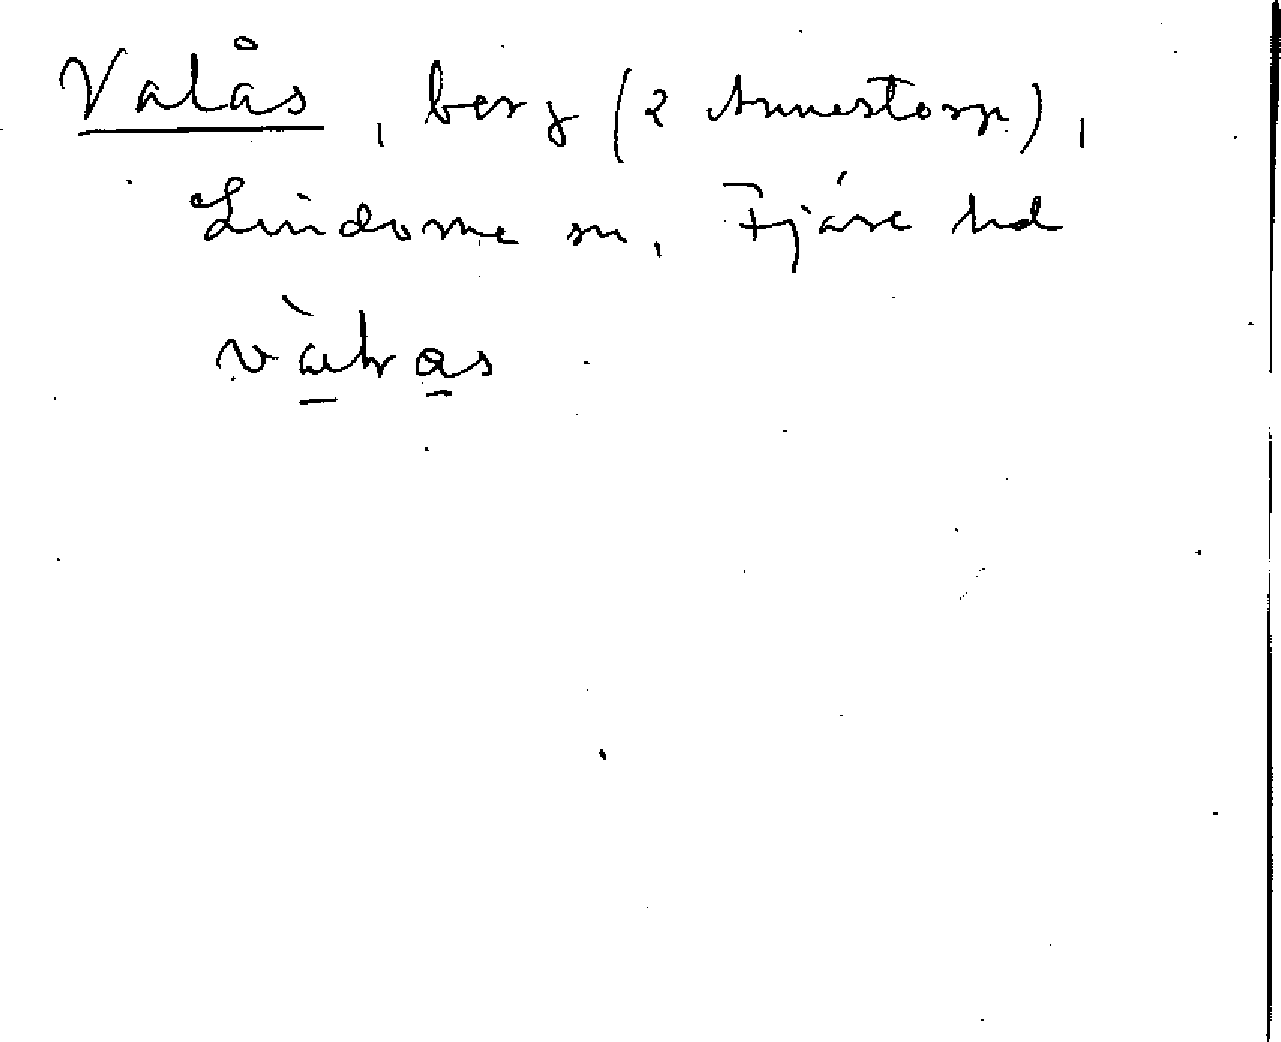 Valås, berg (2 Annestorp),
Lindome sn, Fjäre hd